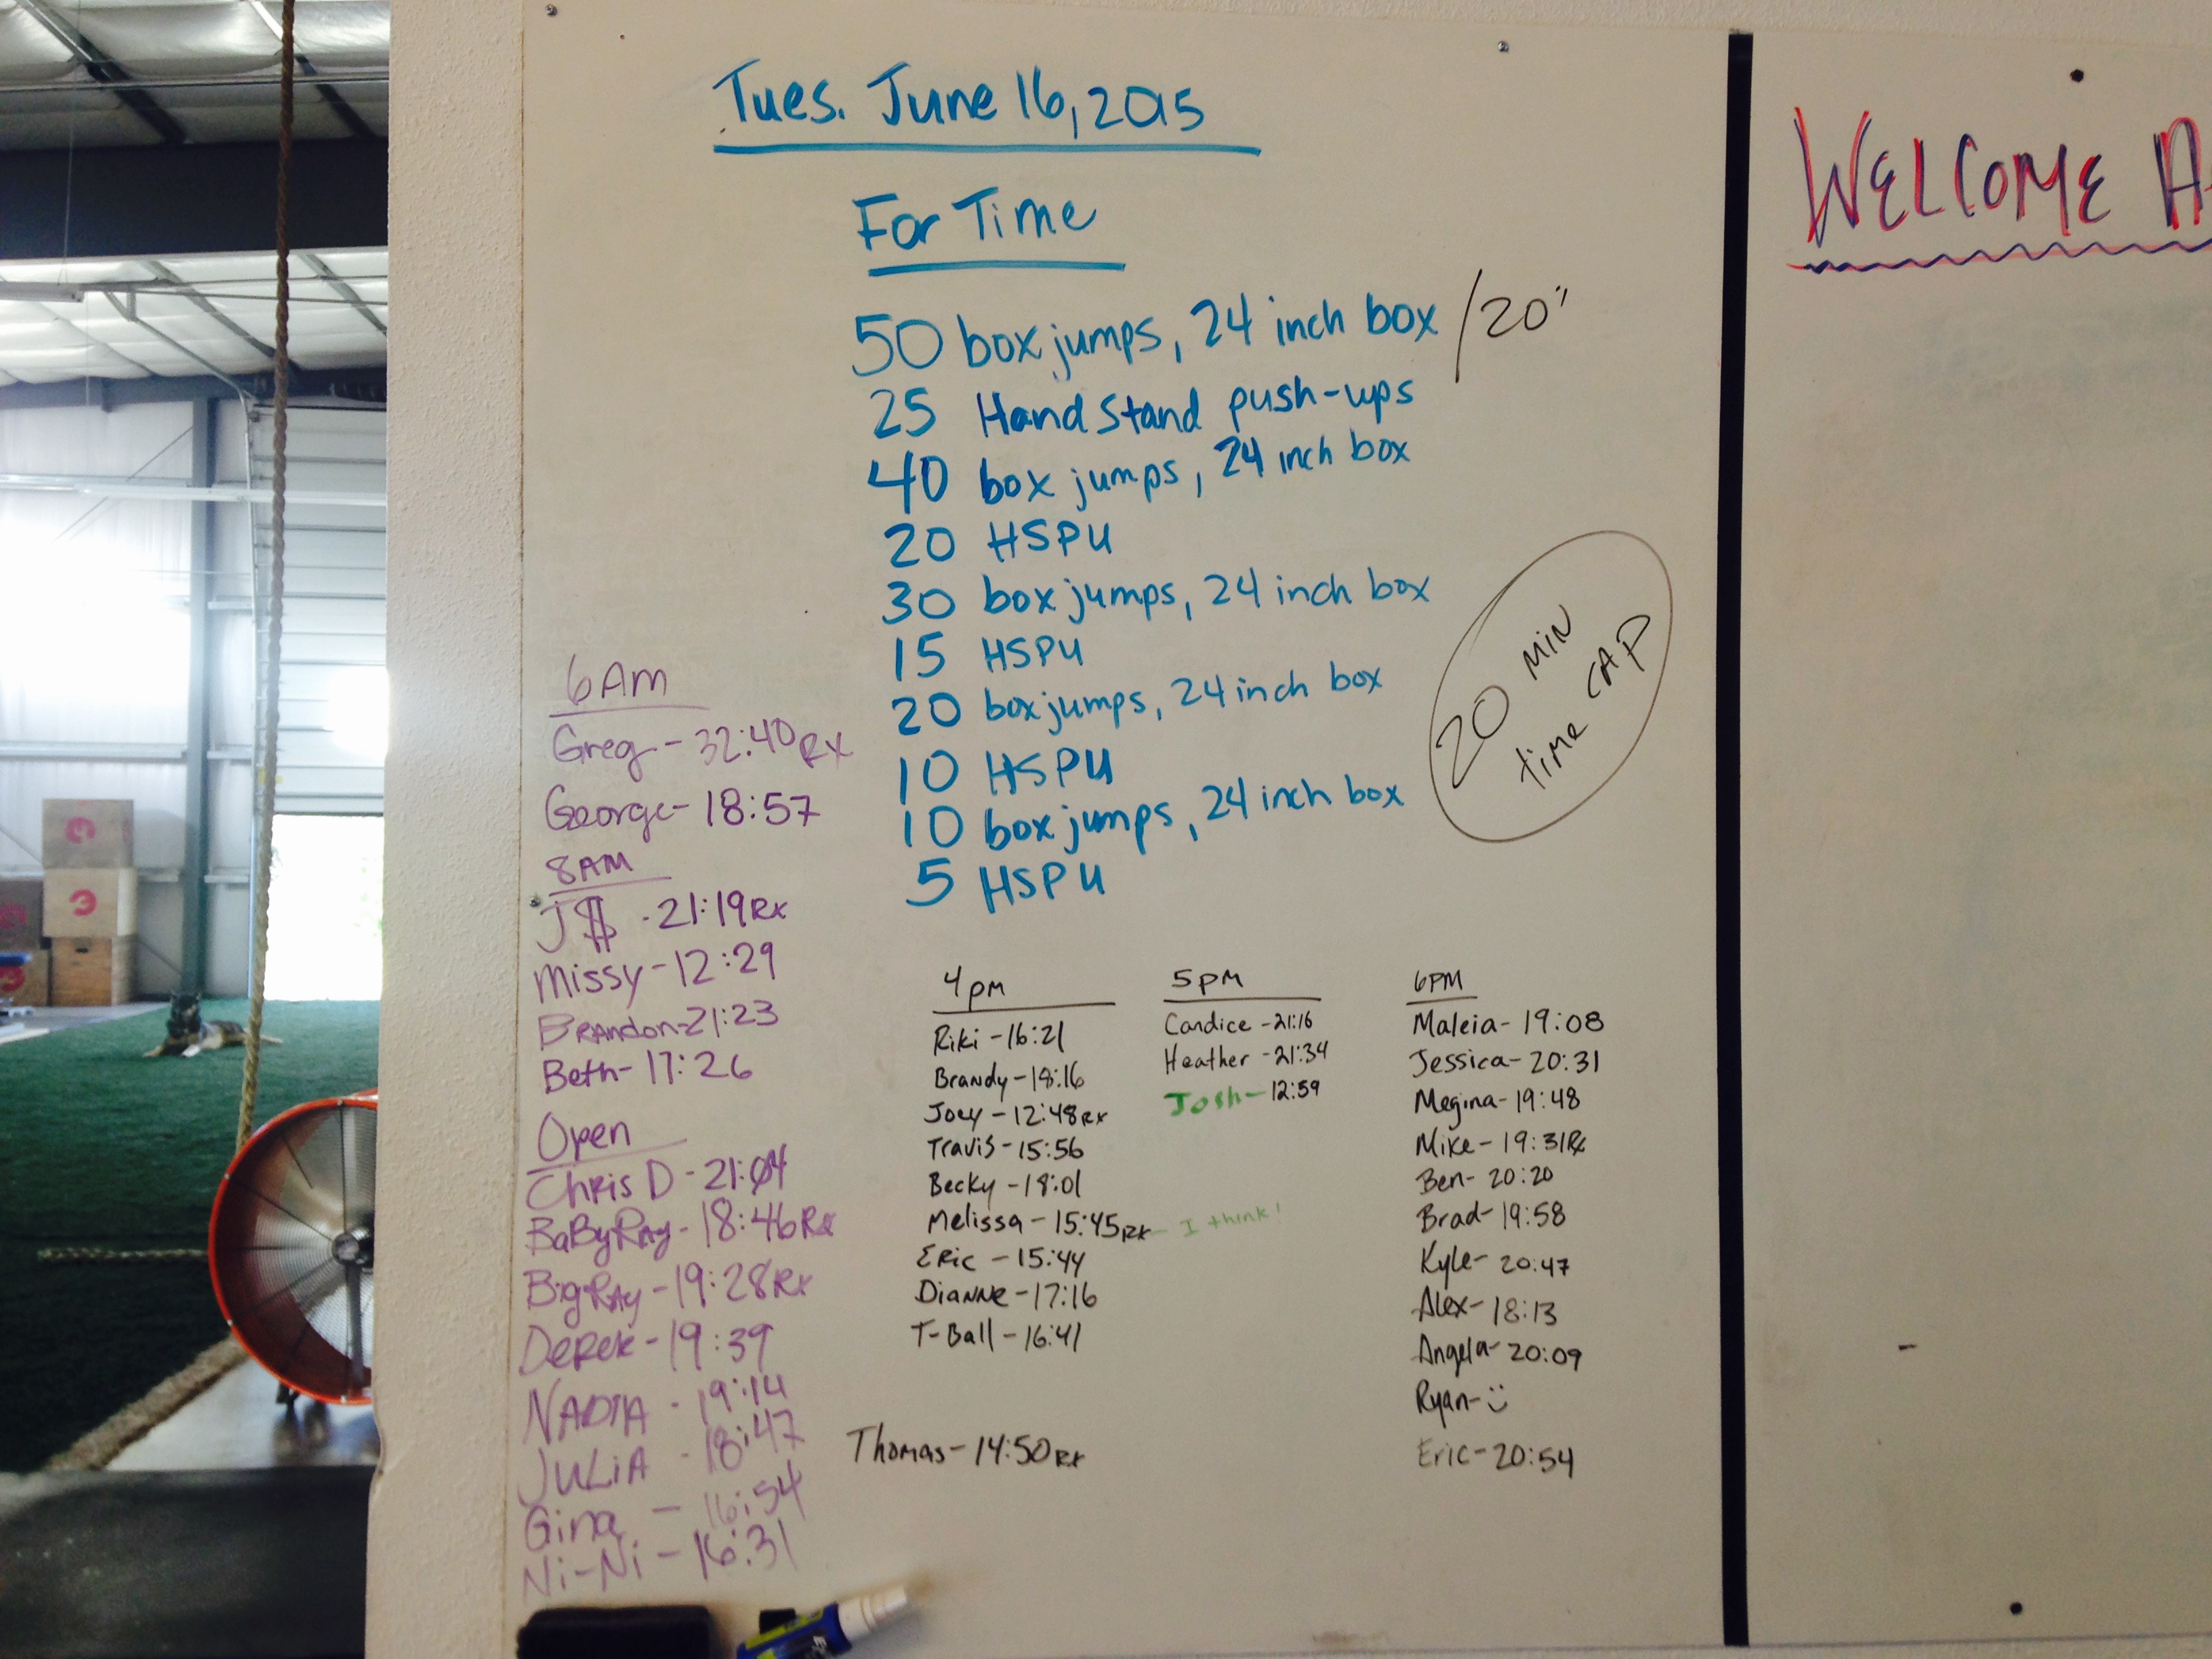 Tues. June 16, 2015
For Time
50 box jumps, 24 inch box /20"
25 Hand Stand push-ups
40 box jumps, 24 inch box
20 HSPU
30 box jumps, 24 inch box
15 HSPU
20 box jumps, 24 inch box
10 HSPU
10 box jumps, 24 inch box
5 HSPU
20 MIN
time CAP
6AM
Greg - 32:40 RX
George - 18:57
8AM
J$ - 21:19 Rx
Missy - 12:29
Brandon - 21:23
Beth - 17:26
Open
Chris D - 21:04
BaByRay - 18:46 Rx
BigRay - 19:28 Rx
Derek - 19:39
NADIA - 19:14
JULIA - 18:47
Gina - 16:54
Ni-Ni - 16:31
4pm
Riki - 16:21
Brandy - 18:16
Joey - 12:48 Rx
Travis - 15:56
Becky - 18:01
Melissa - 15:45 Rx - I think!
Eric - 15:44
Dianne - 17:16
T-Ball - 16:41
Thomas - 14:50 Rx
5pm
Candice - 21:16
Heather - 21:34
Josh - 12:59
6PM
Maleia - 19:08
Jessica - 20:31
Megina - 19:48
Mike - 19:31 Rx
Ben - 20:20
Brad - 19:58
Kyle - 20:47
Alex - 18:13
Angela - 20:09
Ryan - :)
Eric - 20:54
WELCOME